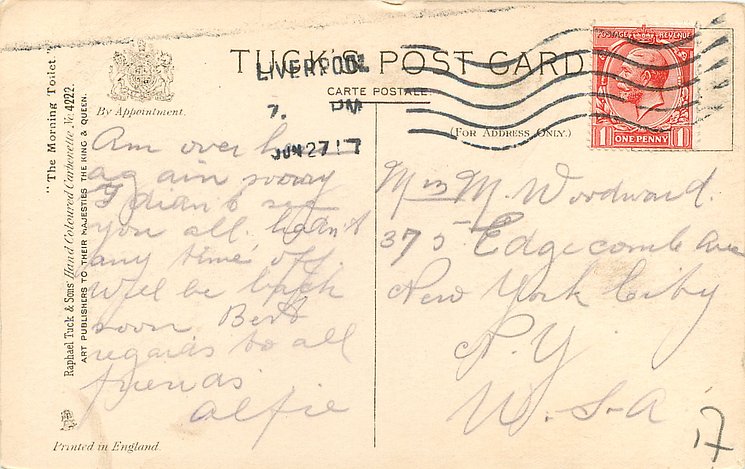 TUCK'S POST CARD
CARTE POSTALE
(FOR ADDRESS ONLY.)
By Appointment.
"The Morning Toilet."
Raphael Tuck & Sons' Hand Coloured Carbonette No. 4222.
ART PUBLISHERS TO THEIR MAJESTIES THE KING & QUEEN.
LIVERPOOL
7. PM
JUN 27 17
POSTAGE REVENUE
1 ONE PENNY 1
Am over here
again sorry
I didn't see
you all. hadn't
any time off.
Will be back
soon Best
regards to all
friends
Alfie
Mrs M. Woodward.
375 Edgecombe Ave
New York City
N.Y.
U.S.A
17
Printed in England.